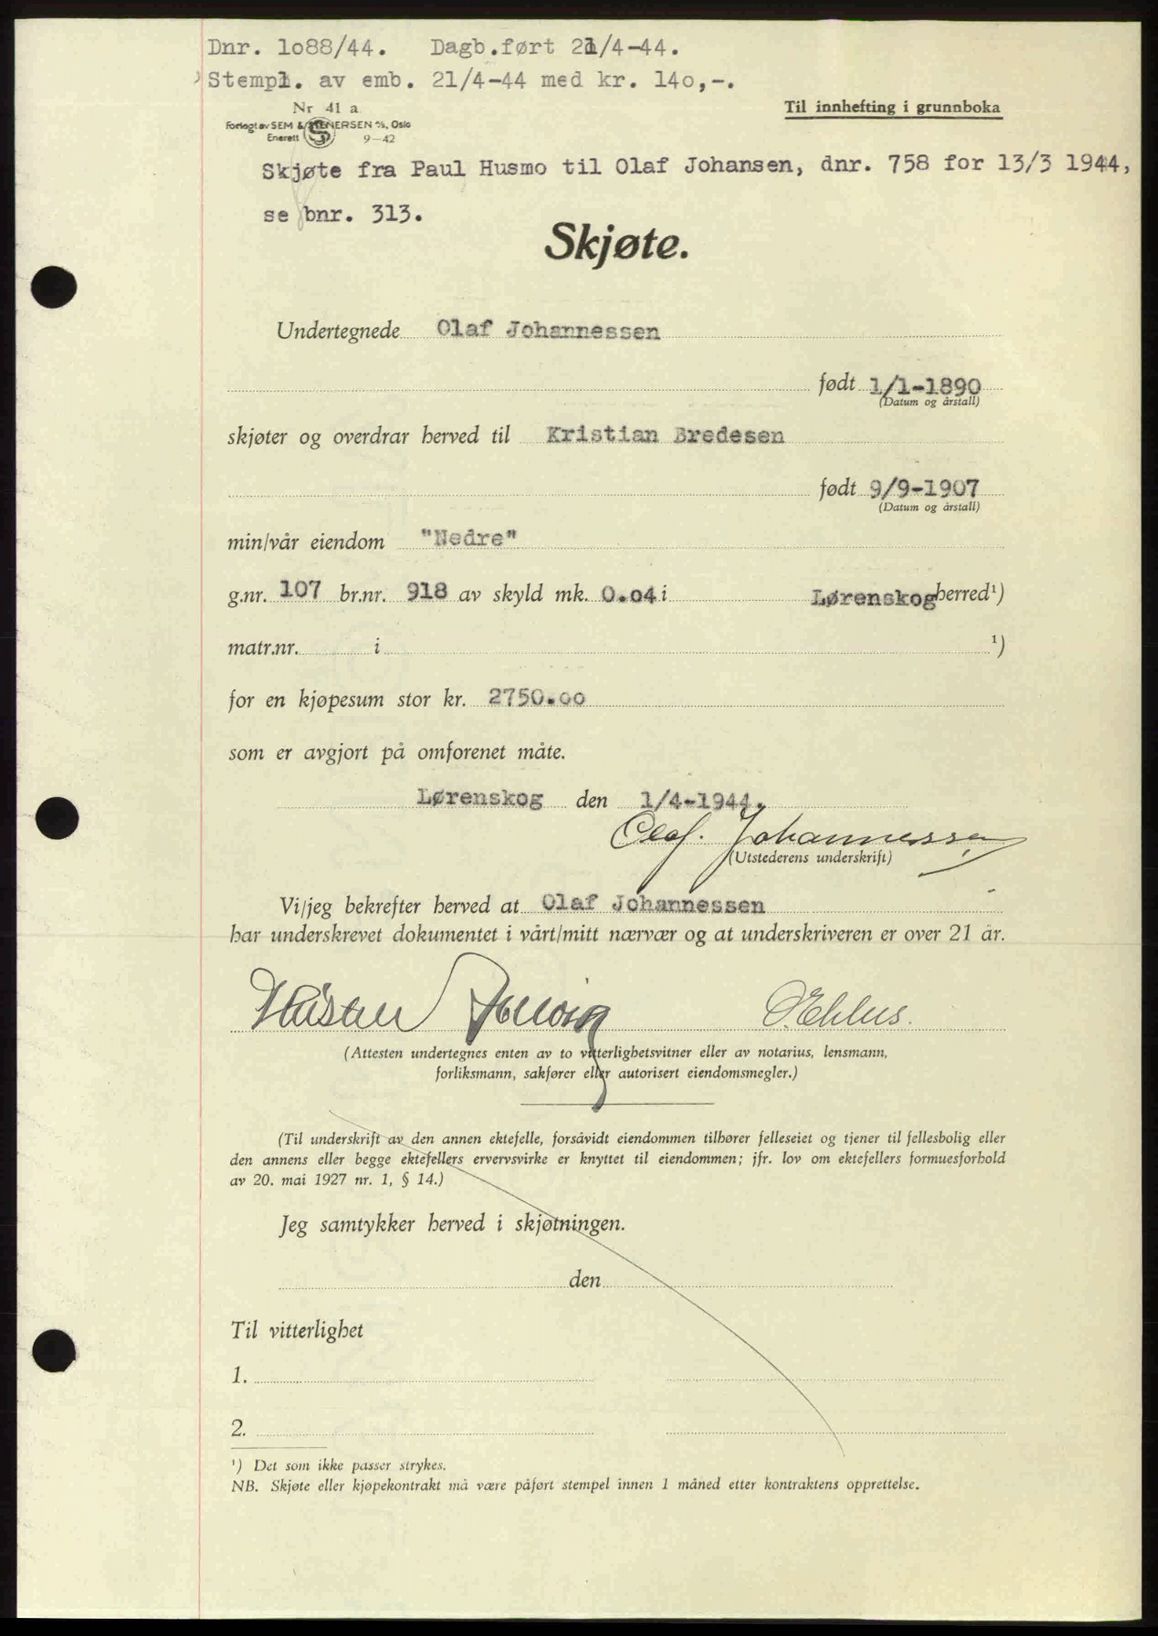 Dnr. 1o88/44. Dagb.ført 21/4-44.
Stempl. av emb. 21/4-44 med kr. 14o,-.
Nr 41 a
Til innhefting i grunnboka
Forlagt av SEM & STENERSEN A/S, Oslo
Enerett 9-42
Skjøte fra Paul Husmo til Olaf Johansen, dnr. 758 for 13/3 1944,
se bnr. 313.
Skjøte.
Undertegnede Olaf Johannessen
født 1/1-1890
(Datum og årstall)
skjøter og overdrar herved til Kristian Bredesen
født 9/9-1907
(Datum og årstall)
min/vår eiendom "Nedre"
g.nr. 107 br.nr. 918 av skyld mk. 0.04 i Lørenskog herred¹)
matr.nr. i ¹)
for en kjøpesum stor kr. 2750.00
som er avgjort på omforenet måte.
Lørenskog den 1/4-1944.
Olaf. Johannessen
(Utstederens underskrift)
Vi/jeg bekrefter herved at Olaf Johannessen
har underskrevet dokumentet i vårt/mitt nærvær og at underskriveren er over 21 år.
(Attesten undertegnes enten av to vitterlighetsvitner eller av notarius, lensmann,
forliksmann, sakfører eller autorisert eiendomsmegler.)
(Til underskrift av den annen ektefelle, forsåvidt eiendommen tilhører felleseiet og tjener til fellesbolig eller
den annens eller begge ektefellers ervervsvirke er knyttet til eiendommen; jfr. lov om ektefellers formuesforhold
av 20. mai 1927 nr. 1, § 14.)
Jeg samtykker herved i skjøtningen.
den
Til vitterlighet
1.
2.
¹) Det som ikke passer strykes.
NB. Skjøte eller kjøpekontrakt må være påført stempel innen 1 måned etter kontraktens opprettelse.